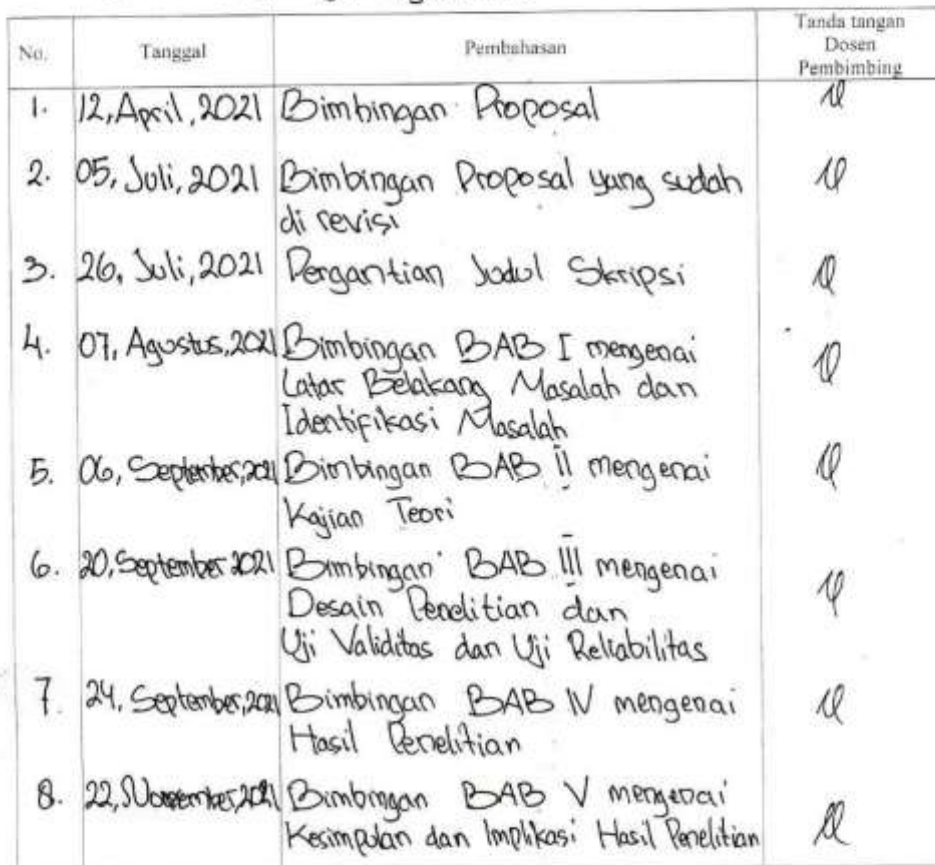 No. Tanggal Pembahasan Tanda tangan
Dosen
Pembimbing
1. 12, April, 2021 Bimbingan Proposal
2. 05, Juli, 2021 Bimbingan Proposal yang sudah
di revisi
3. 26, Juli, 2021 Pergantian Judul Skripsi
4. 07, Agustus, 2021 Bimbingan BAB I mengenai
Latar Belakang Masalah dan
Identifikasi Masalah
5. 06, September, 2021 Bimbingan BAB II mengenai
Kajian Teori
6. 20, September 2021 Bimbingan BAB III mengenai
Desain Penelitian dan
Uji Validitas dan Uji Reliabilitas
7. 24, September, 2021 Bimbingan BAB IV mengenai
Hasil Penelitian
8. 22, November, 2021 Bimbingan BAB V mengenai
Kesimpulan dan Implikasi Hasil Penelitian